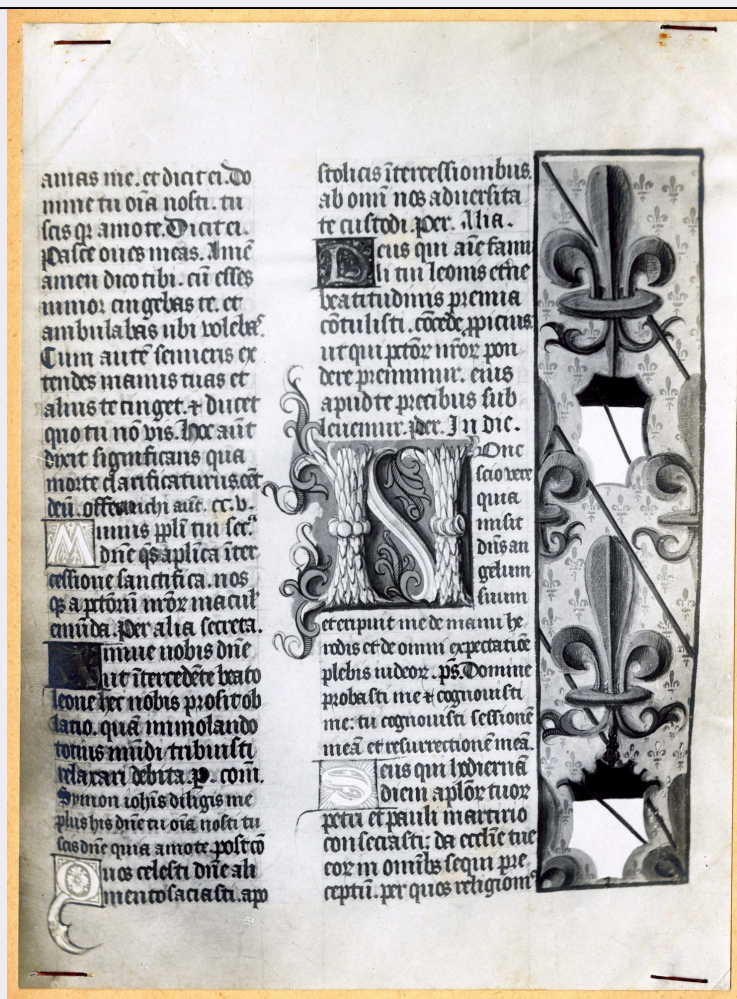 amas me. et dicit ei. Do
mine tu oīa nosti. tu
scis qr amo te. Dicit ei.
Pasce oues meas. Amē
amen dico tibi. cū esses
iunior cingebas te. et
ambulabas ubi voleba&#x27;.
Cum autē senueris ex
tendes manus tuas et
alius te cinget. ⁊ ducet
quo tu nō vis. Hoc aūt
dixit significans qua
morte clarificaturus cēt
deū. offerēnchi aūt. cc. v.
Munus ppli tui
dn̄e qs aplīca īter
cessione sanctifica. nos
qz a pctōrū nrōr macul
emūda. Per alia secreta.
Annue nobis dn̄e
ut ītercedēte beato
leone hec nobis profit ob
latio. quā immolando
totius mūdi tribuisti
relaxari debita. p. com̄.
Symon iohīs diligis me
plus his dn̄e tu oīa nosti tu
scis dn̄e quia amo te. postcō
Quos celesti dn̄e ali
mento saciasti. apo
stolicis ītercessionibus.
ab omī nos aduersita
te custodi. per. Alia.
Deus qui aīe famu
li tui leonis etr̄ne
beatitudinis premia
cōtulisti. cōcede ppicius
ut qui pctōr nrōr pon
dere premimur. eius
apud te precibus sub
leuemur. per. In die.
Nunc
scio vere
quia
misit
dn̄s an
gelum
suum
et eripuit me de manu he
rodis et de omni expectatiōe
plebis iudeor. ps. Domine
probasti me ⁊ cognouisti
me: tu cognouisti sessionē
meā et resurrectionē meā.
Deus qui hodiernā
diem aplōr tuor
petri et pauli martirio
consecrasti: da ecclīe tue
eor in omībs sequi pre
ceptū. per quos religionis